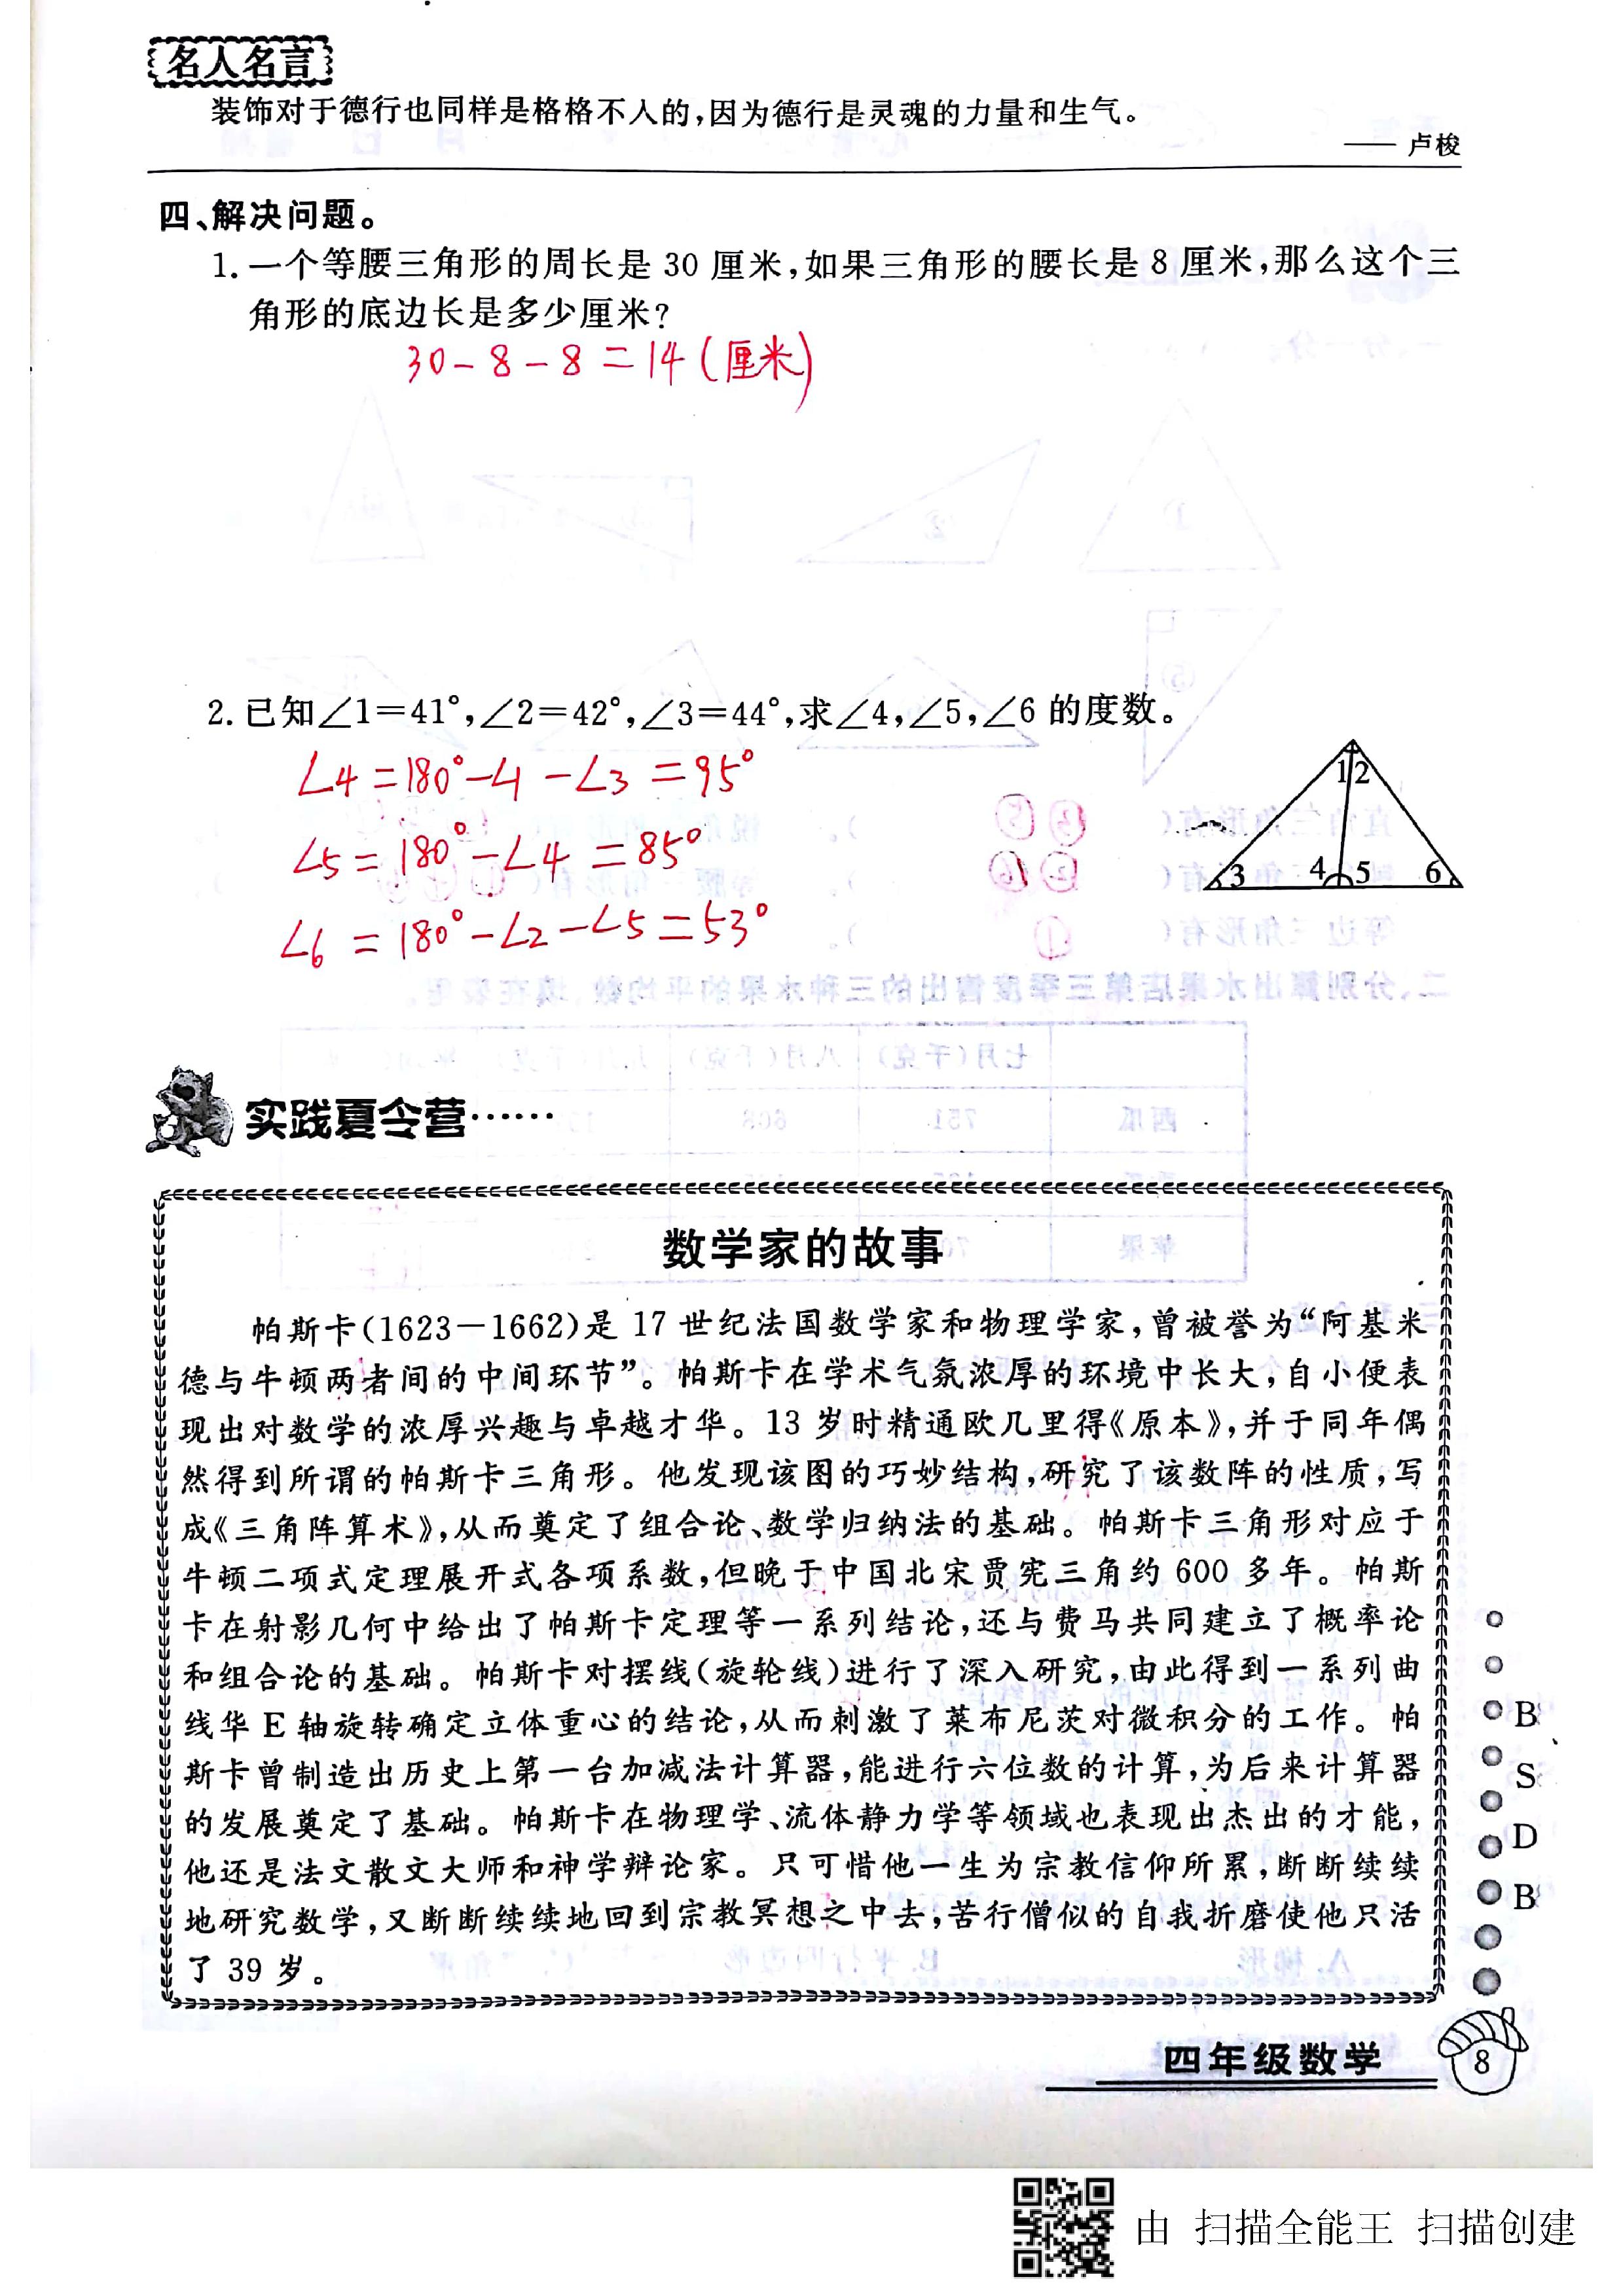 名人名言
装饰对于德行也同样是格格不入的,因为德行是灵魂的力量和生气。
—— 卢梭
四、解决问题。
1. 一个等腰三角形的周长是 30 厘米,如果三角形的腰长是 8 厘米,那么这个三
角形的底边长是多少厘米?
30-8-8=14(厘米)
2. 已知∠1=41°,∠2=42°,∠3=44°,求∠4,∠5,∠6 的度数。
∠4=180°-∠1-∠3=95°
∠5=180°-∠4=85°
∠6=180°-∠2-∠5=53°
1 2
3 4 5 6
实践夏令营……
数学家的故事
帕斯卡(1623—1662)是 17 世纪法国数学家和物理学家,曾被誉为“阿基米
德与牛顿两者间的中间环节”。帕斯卡在学术气氛浓厚的环境中长大,自小便表
现出对数学的浓厚兴趣与卓越才华。13 岁时精通欧几里得《原本》,并于同年偶
然得到所谓的帕斯卡三角形。他发现该图的巧妙结构,研究了该数阵的性质,写
成《三角阵算术》,从而奠定了组合论、数学归纳法的基础。帕斯卡三角形对应于
牛顿二项式定理展开式各项系数,但晚于中国北宋贾宪三角约 600 多年。帕斯
卡在射影几何中给出了帕斯卡定理等一系列结论,还与费马共同建立了概率论
和组合论的基础。帕斯卡对摆线(旋轮线)进行了深入研究,由此得到一系列曲
线华 E 轴旋转确定立体重心的结论,从而刺激了莱布尼茨对微积分的工作。帕
斯卡曾制造出历史上第一台加减法计算器,能进行六位数的计算,为后来计算器
的发展奠定了基础。帕斯卡在物理学、流体静力学等领域也表现出杰出的才能,
他还是法文散文大师和神学辩论家。只可惜他一生为宗教信仰所累,断断续续
地研究数学,又断断续续地回到宗教冥想之中去,苦行僧似的自我折磨使他只活
了 39 岁。
B
S
D
B
四年级数学
8
由 扫描全能王 扫描创建